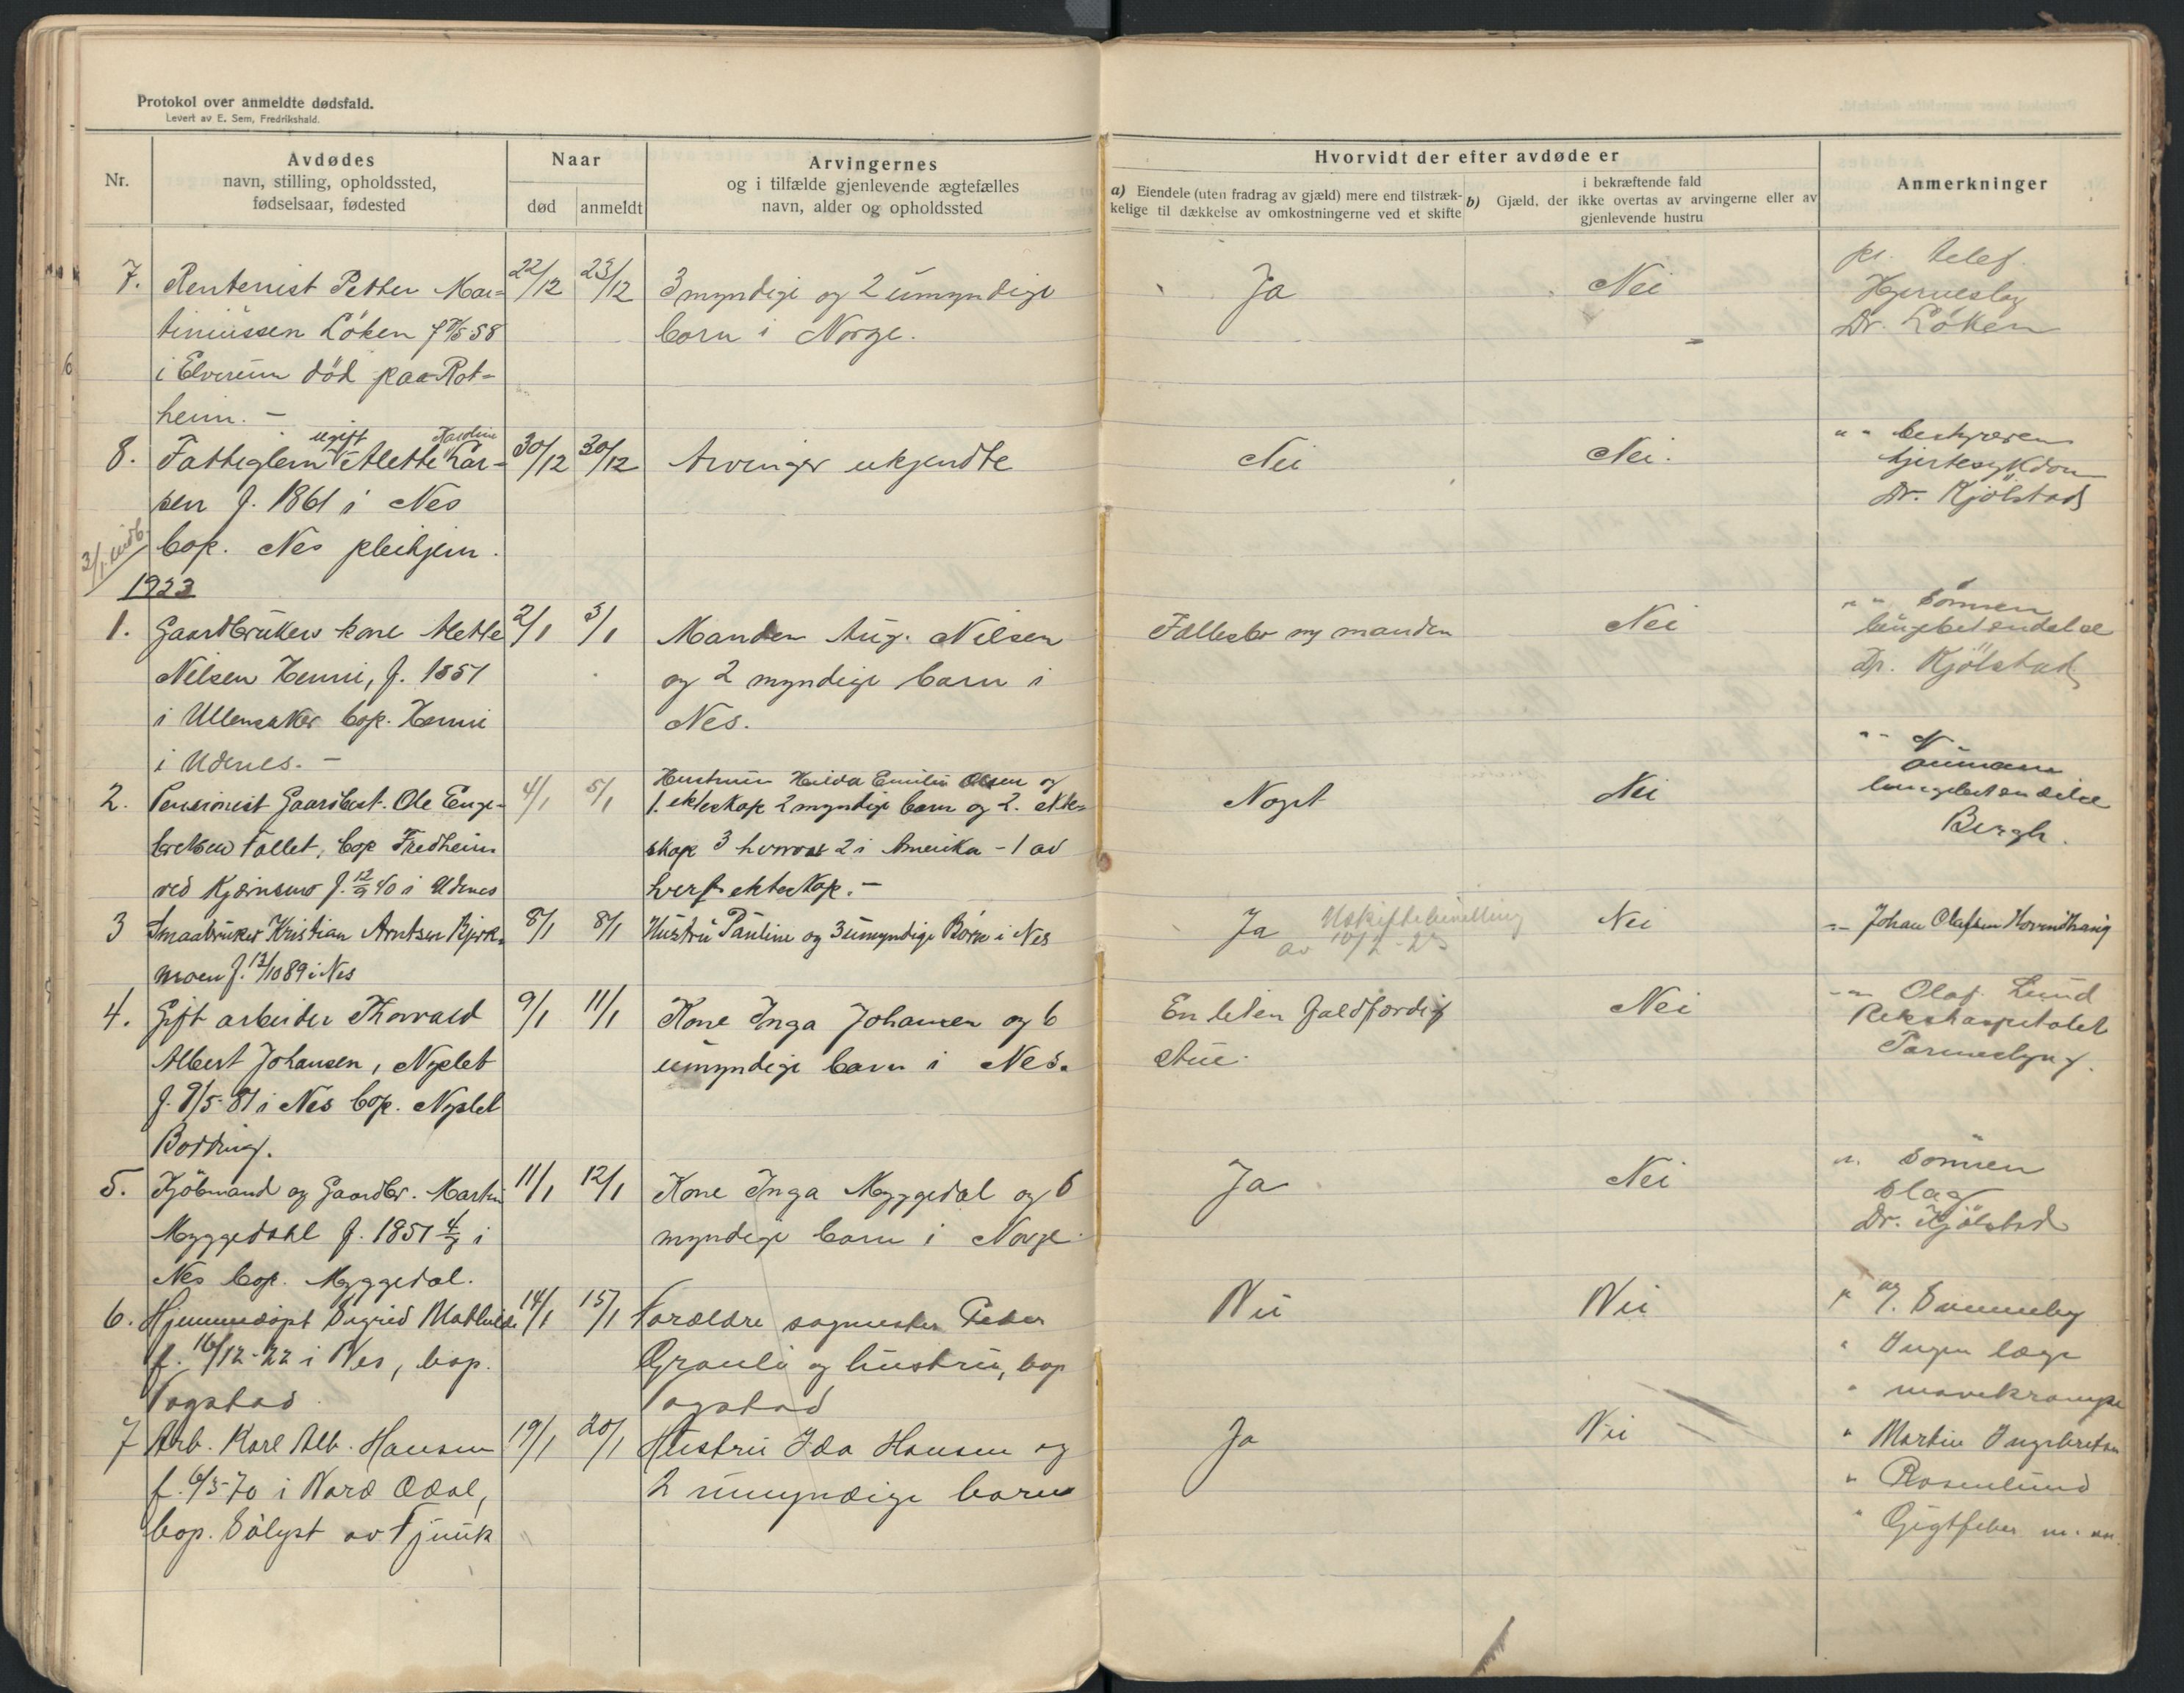 Protokol over anmeldte dødsfald.
Levert av E. Sem, Fredrikshald.
Nr.
Avdødes
navn, stilling, opholdssted,
fødselsaar, fødested
Naar
død
anmeldt
Arvingernes
og i tilfælde gjenlevende ægtefælles
navn, alder og opholdssted
Hvorvidt der efter avdøde er
a) Eiendele (uten fradrag av gjæld) mere end tilstræk-
kelige til dækkelse av omkostningerne ved et skifte
i bekræftende fald
b) Gjæld, der ikke overtas av arvingerne eller av
gjenlevende hustru
Anmerkninger
7.
Rentenist Petter Mar-
tiniussen Løken f
58
i Elverum død paa Rot-
heim. -
22/12
23/12
3 myndige og 2 umyndige
barn i Norge.
Ja
Nei
pr. telef.
Hjerneslag
Dr. Løken
8.
ugift Karoline
Fattiglem Alette Lar-
sen f. 1861 i Nes
bop. Nes pleihjem.
30/12
30/12
Arvinger ukjendte
Nei
Nei.
" " bestyreren
hjertesykdom
Dr. Kjølstad
3/1 indb.
1923
1.
Gaardbrukers kone Alette
Nilsen Henni, f. 1851
i Ullensaker bop. Henni
i Udenes. -
2/1
3/1
Manden Aug. Nilsen
og 2 myndige barn i
Nes.
Fællesbo m manden
Nei
" " Sønnen
lungebetændelse
Dr. Kjølstad
2.
Pensionist Gaardbest. Ole Enge-
bretsen Fallet, bop Fredheim
ved Kjærnsmo f. 12/9 40 i Udenes
4/1
5/1
Hustruen Hilda Emilie Olsen og
1. ekteskap 2 myndige barn og 2. ekte-
skap 3 hvorav 2 i Amerika - 1 av
hvert ekteskap. -
Noget
Nei
" "
lungebetændelse
Bergh.
3
Smaabruker Kristian Arntsen Bjerk-
moen f. 12/10 89 i Nes
8/1
8/1
Hustru Pauline og 3 umyndige Børn i Nes
Ja
Uskiftebevilling
av 10/2 - 23
Nei
" " Johan Olafsen
4.
Gift arbeider Thorvald
Albert Johansen, Nyslet
f. 9/5-81 i Nes bop. Nyslet
Bodding.
9/1
11/1
Kone Inga Johansen og 6
umyndige barn i Nes.
En liten faldfærdig
stue.
Nei
" " Olaf Lund
Rikshospitalet
Tarmeslyng.
5.
Kjøbmand og Gaardbr. Martin
Myggedahl f. 1851 4/7 i
Nes bop. Myggedal.
11/1
12/1
Kone Inga Myggedal og 6
myndige barn i Norge.
Ja
Nei
" Sønnen
Slag
Dr. Kjølstad
6.
Hjemmedøpt Sigrid Mathilde
f. 16/12-22 i Nes, bop.
Vogstad
14/1
15/1
Forældre sagmester Peder
Grauli og hustru, bop
Vogstad
Nei
Nei
" Ingen læge
" mavekrampe
7
Arb. Karl Alb. Hansen
f. 6/3-70 i Nord Odal,
bop. Sølyst av Fjuuk
19/1
20/1
Hustru Ida Hansen og
2 umyndige barn
Ja
Nei
" Martin Ingebretsen
" Rosenlund
" Gigtfeber m. m.